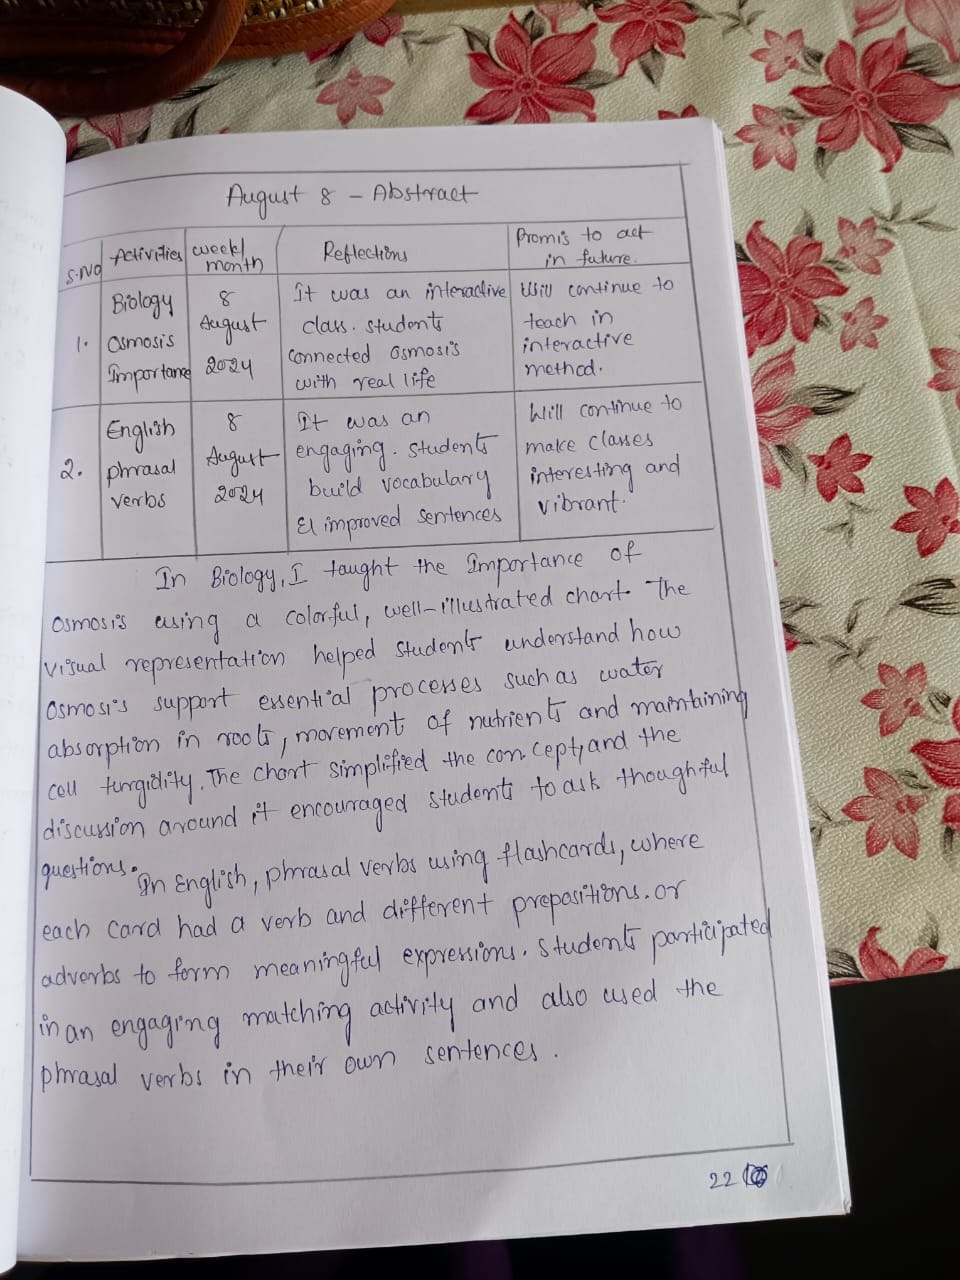 August 8 - Abstract
S.NO Activities week/month Reflections Promis to act in future.
1. Biology Osmosis Importance 8 August 2024 It was an interactive class. students connected osmosis with real life Will continue to teach in interactive method.
2. English phrasal verbs 8 August 2024 It was an engaging. students build vocabulary & improved sentences Will continue to make classes interesting and vibrant.
In Biology, I taught the Importance of
osmosis using a colorful, well-illustrated chart. The
visual representation helped students understand how
Osmosis support essential processes such as water
absorption in roots, movement of nutrients and maintaining
cell turgidity. The chart simplified the concept, and the
discussion around it encouraged students to ask thoughtful
questions.
In English, phrasal verbs using flashcards, where
each card had a verb and different prepositions. or
adverbs to form meaningful expressions. Students participated
in an engaging matching activity and also used the
phrasal verbs in their own sentences.
22